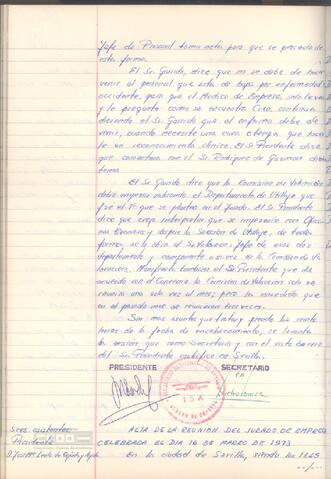 Jefe de Personal toma nota para que se proceda de
esta forma.
El Sr. Garrido, dice que no se debe de hacer
venir al personal que esta de baja por enfermedad o
accidente, para que el Medico de Empresa, solo le vea
y le pregunte como se encuentra. Continua
diciendo el Sr. Garrido que el enfermo debe de
venir, cuando necesite una cura o tenga que hacer
le un reconocimiento clinico. El Sr. Presidente dice
que comentara con el Sr. Rodriguez de Guzman dicho
tema.
El Sr. Garrido dice que la Comision de Valoración
debió empezar valorando el Departamento de Utillaje que
fué el 1º que se planteo en el Jurado. El Sr. Presidente
dice que cree interpretar que se empezaria con Ofici
nas Tecnicas y despues la Seccion de Utillaje, de todas
formas, se le dira al Sr. Velasco, Jefe de esos dos
departamentos y componente a su vez de la Comision de Va
loracion. Manifiesta tambien el Sr. Presidente que de
acuerdo con el Convenio la Comision de Valoracion solo se
reuniria una sola vez al mes; pero ha acordado que
en el pasado mes se reunieran tres veces.
Sin mas asuntos que tratar, siendo las veinte
horas de la fecha de encabezamiento, se levanta
la sesión que como Secretario y con el visto bueno
del Sr. Presidente certifico en Sevilla.
PRESIDENTE
SECRETARIO
PA
I S A
JURADO DE EMPRESA
Sres. asistentes
Presidente
ACTA DE LA REUNION DEL JURADO DE EMPRESA
CELEBRADA EL DIA 16 DE MARZO DE 1973
En la ciudad de Sevilla, siendo las 17,45